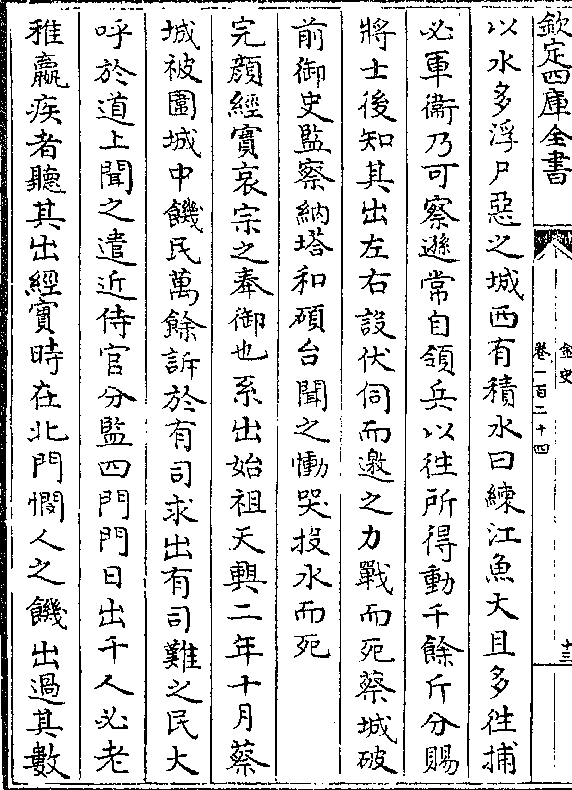 欽定四庫全書
金史
卷一百二十四
十三
以水多浮尸惡之城西有積水曰練江魚大且多往捕
必軍衛乃可察遜常自領兵以往所得動千餘斤分賜
將士後知其出左右設伏伺而邀之力戰而死蔡城破
前御史監察納塔和碩台聞之慟哭投水而死
完顔經實哀宗之奉御也系出始祖天興二年十月蔡
城被圍城中饑民萬餘訴於有司求出有司難之民大
呼於道上聞之遣近侍官分監四門門日出千人必老
稚羸疾者聽其出經實時在北門憫人之饑出過其數